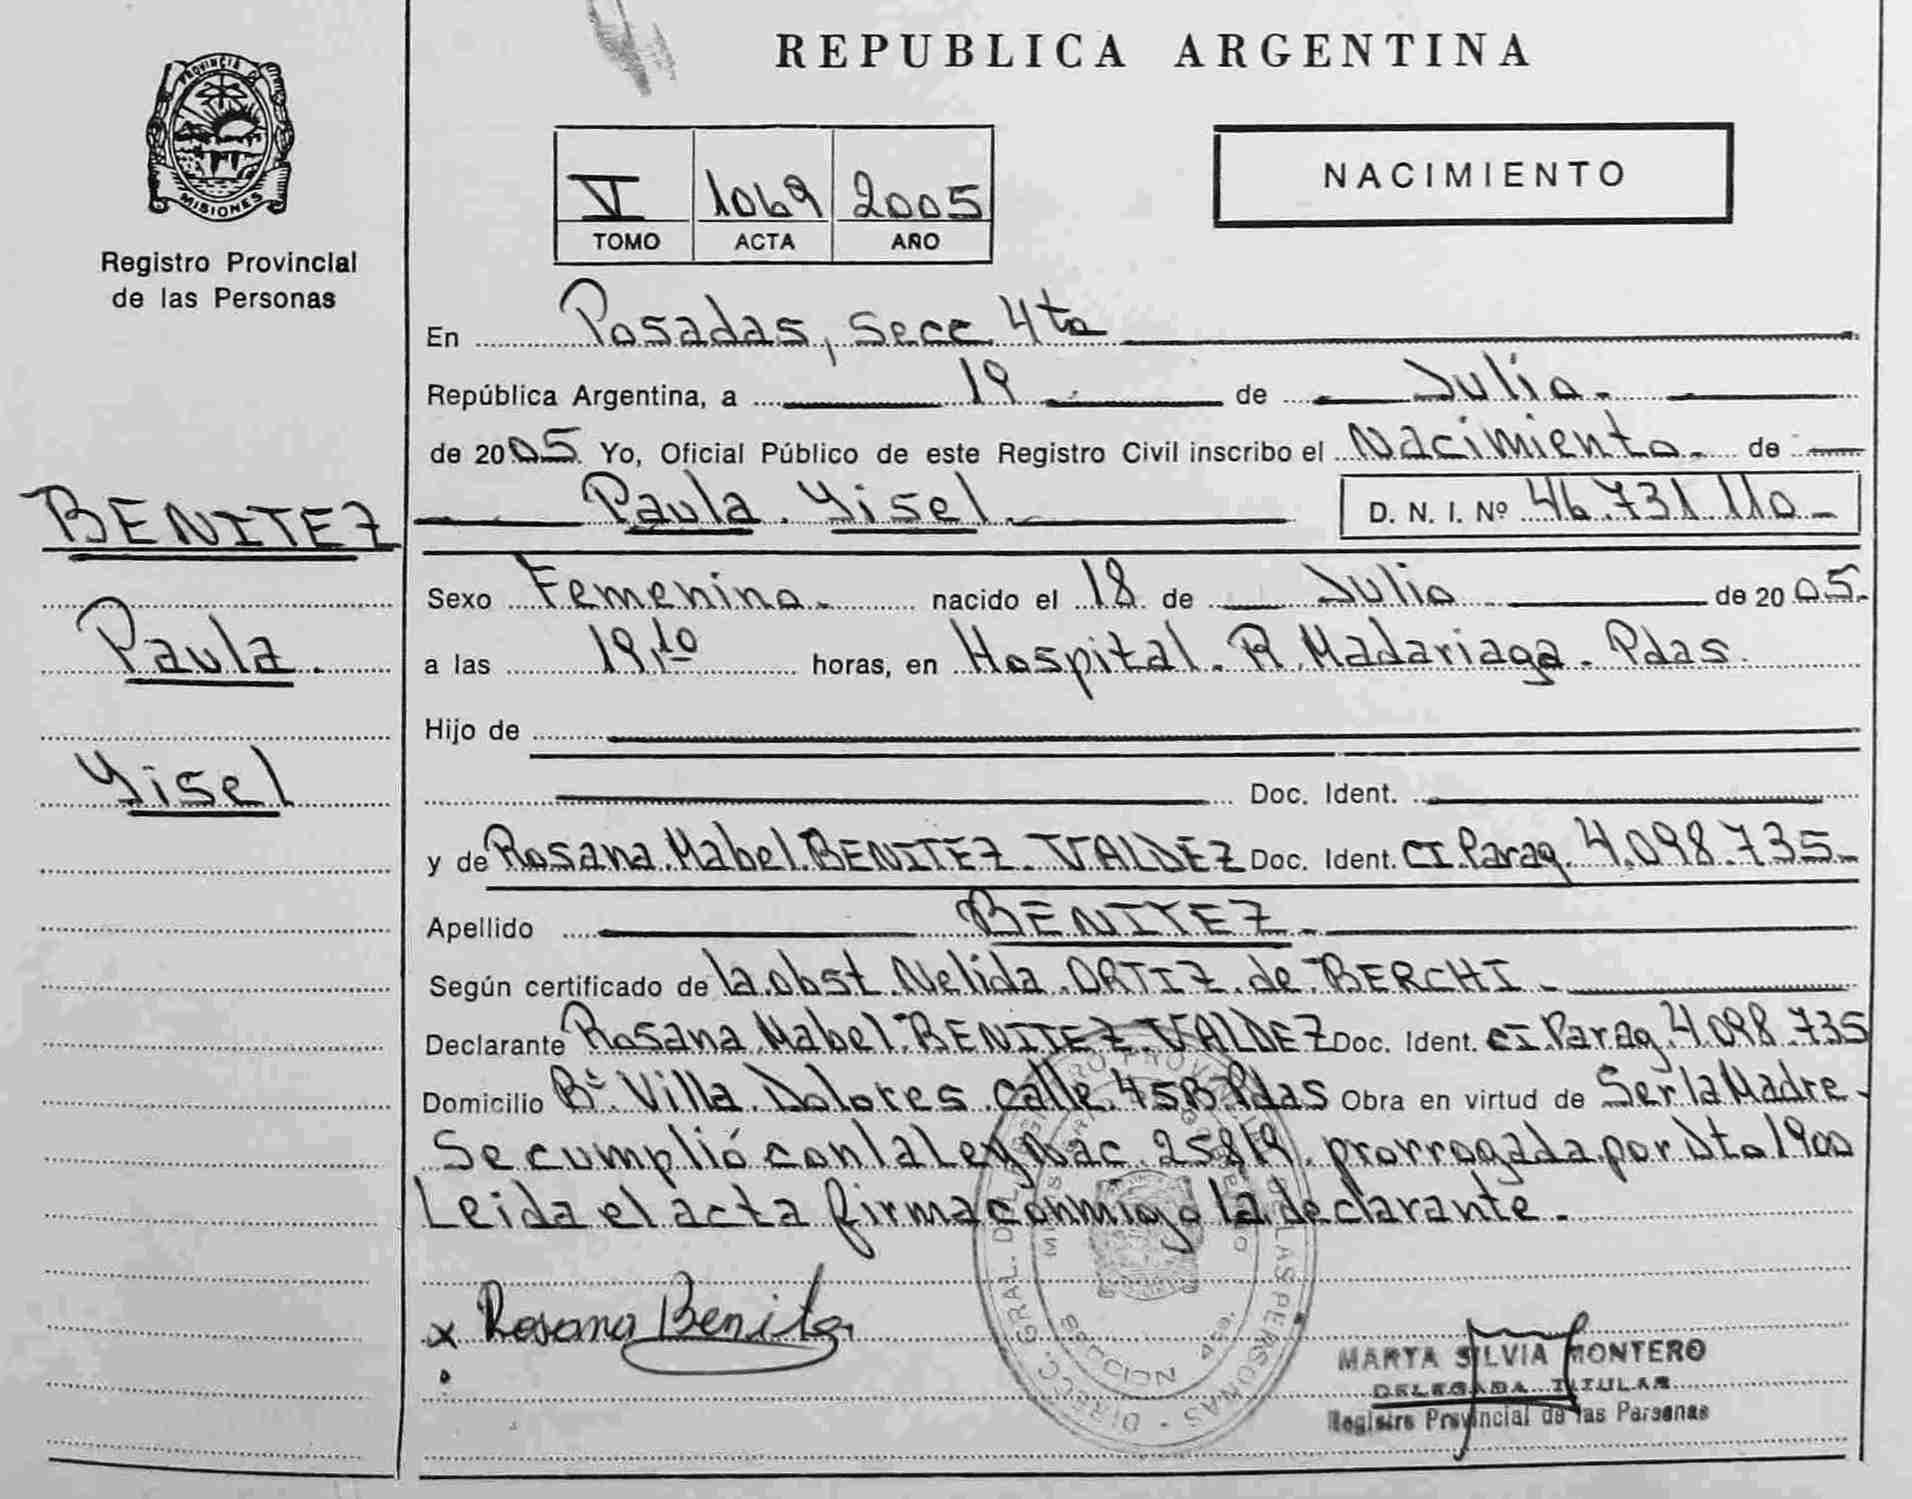 REPUBLICA ARGENTINA
PROVINCIA DE
MISIONES
Registro Provincial
de las Personas
V 1069 2005
TOMO ACTA AÑO
NACIMIENTO
En Posadas, Secc 4ta
República Argentina, a 19 de Julio.
de 2005 Yo, Oficial Público de este Registro Civil inscribo el Nacimiento. de
Paula Yisel. D. N. I. Nº 46.731.110
BENITEZ
Paula.
Yisel
Sexo Femenino. nacido el 18 de Julio de 2005.
a las 19,10 horas, en Hospital. R. Madariaga. Pdas.
Hijo de
Doc. Ident.
y de Rosana Mabel BENITEZ VALDEZ Doc. Ident. CI. Parag. 4.098.735
Apellido BENITEZ.
Según certificado de la Obst. Nelida ORTIZ de BERCHI
Declarante Rosana Mabel BENITEZ VALDEZ Doc. Ident. CI. Parag. 4.098.735
Domicilio Bº. Villa Dolores calle 45B Pdas Obra en virtud de Ser la Madre
Se cumplió con la Ley Nac. 25819 prorrogada por Dto 1900
Leida el acta firma conmigo la declarante.
x Rosana Benitez
DIRECC. GRAL. DEL REGISTRO PROVINCIAL DE LAS PERSONAS
SECCION 4ta.
MARTA SILVIA MONTERO
DELEGADA TITULAR
Registro Provincial de las Personas